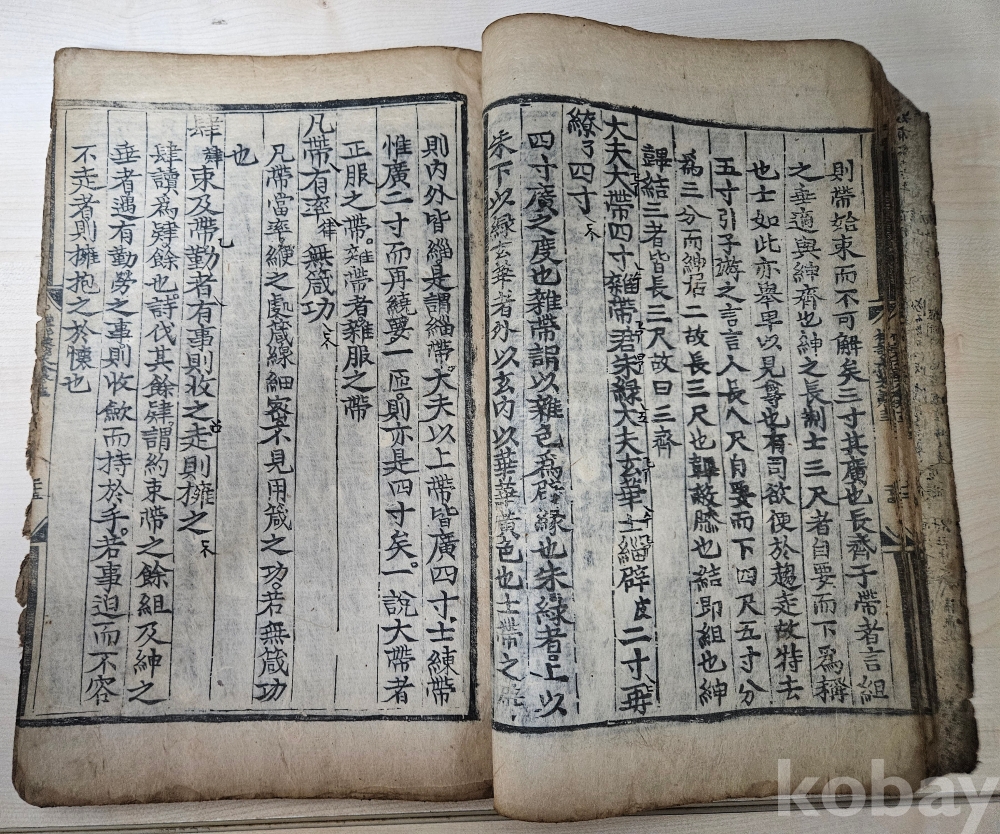 則帶始束而不可解矣三寸其廣也長齊于帶者言組
之垂適與紳齊也紳之長制士三尺者自要而下爲稱
也士如此亦舉卑以見尊也有司欲便於趨走故特去
五寸引子游之言言人長八尺自要而下四尺五寸分
爲三分而紳居二故長三尺也韠蔽膝也結卽組也紳
韠結三者皆長三尺故曰三齊
大夫大帶四寸雜帶君朱綠大夫玄華士緇辟二寸再
繚四寸
四寸廣之度也雜帶謂以雜色爲辟緣也朱綠者上以
朱下以綠玄華者外以玄內以華華黃色也士帶之
則內外皆緇是謂緇帶大夫以上帶皆廣四寸士練帶
惟廣二寸而再繞要一匝則亦是四寸矣一說大帶者
正服之帶雜帶者雜服之帶
凡帶有率無箴功
凡帶當率繂之處箴線細密不見用箴之功若無箴功
也
肆束及帶勤者有事則收之走則擁之
肆讀爲肄餘也詩伐其餘肄謂約束帶之餘組及紳之
垂者遇有勤勞之事則收斂而持於手若事迫而不容
不走者則擁抱之於懷也
kobay